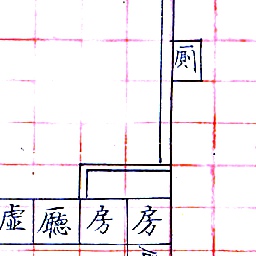 廁
虛廳房房